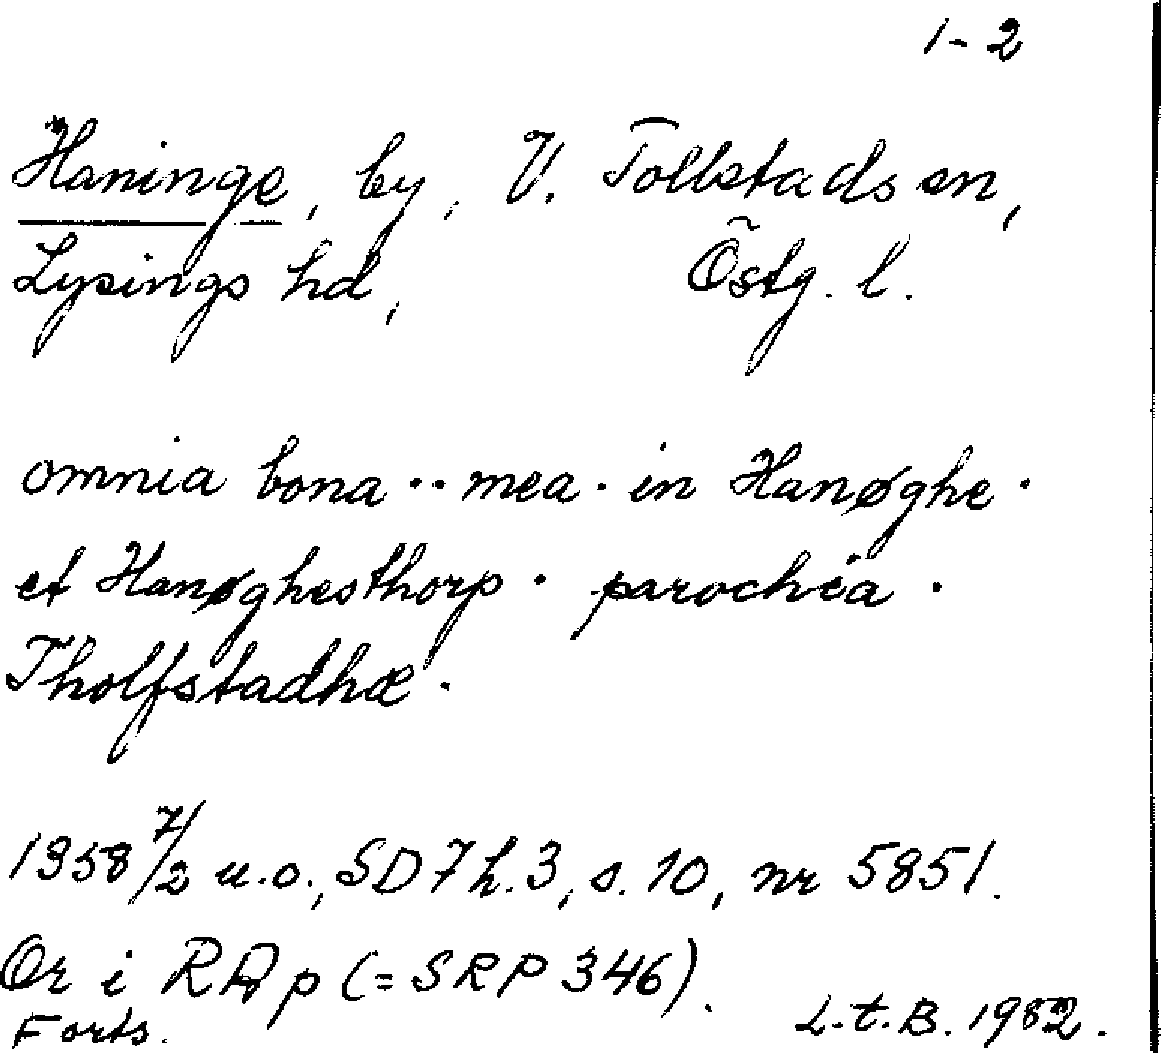 1-2
Haninge, by, V. Tollstads sn,
Lysings hd, Östg. l.
omnia bona ·· mea · in Hanøghe ·
et Hanøghesthorp · parochia ·
Tholfstadhæ ·
1358 7/2 u.o., SD 7 h. 3, s. 10, nr 5851.
Or i RA p (= SRP 346).
Forts. L.t.B. 1982.